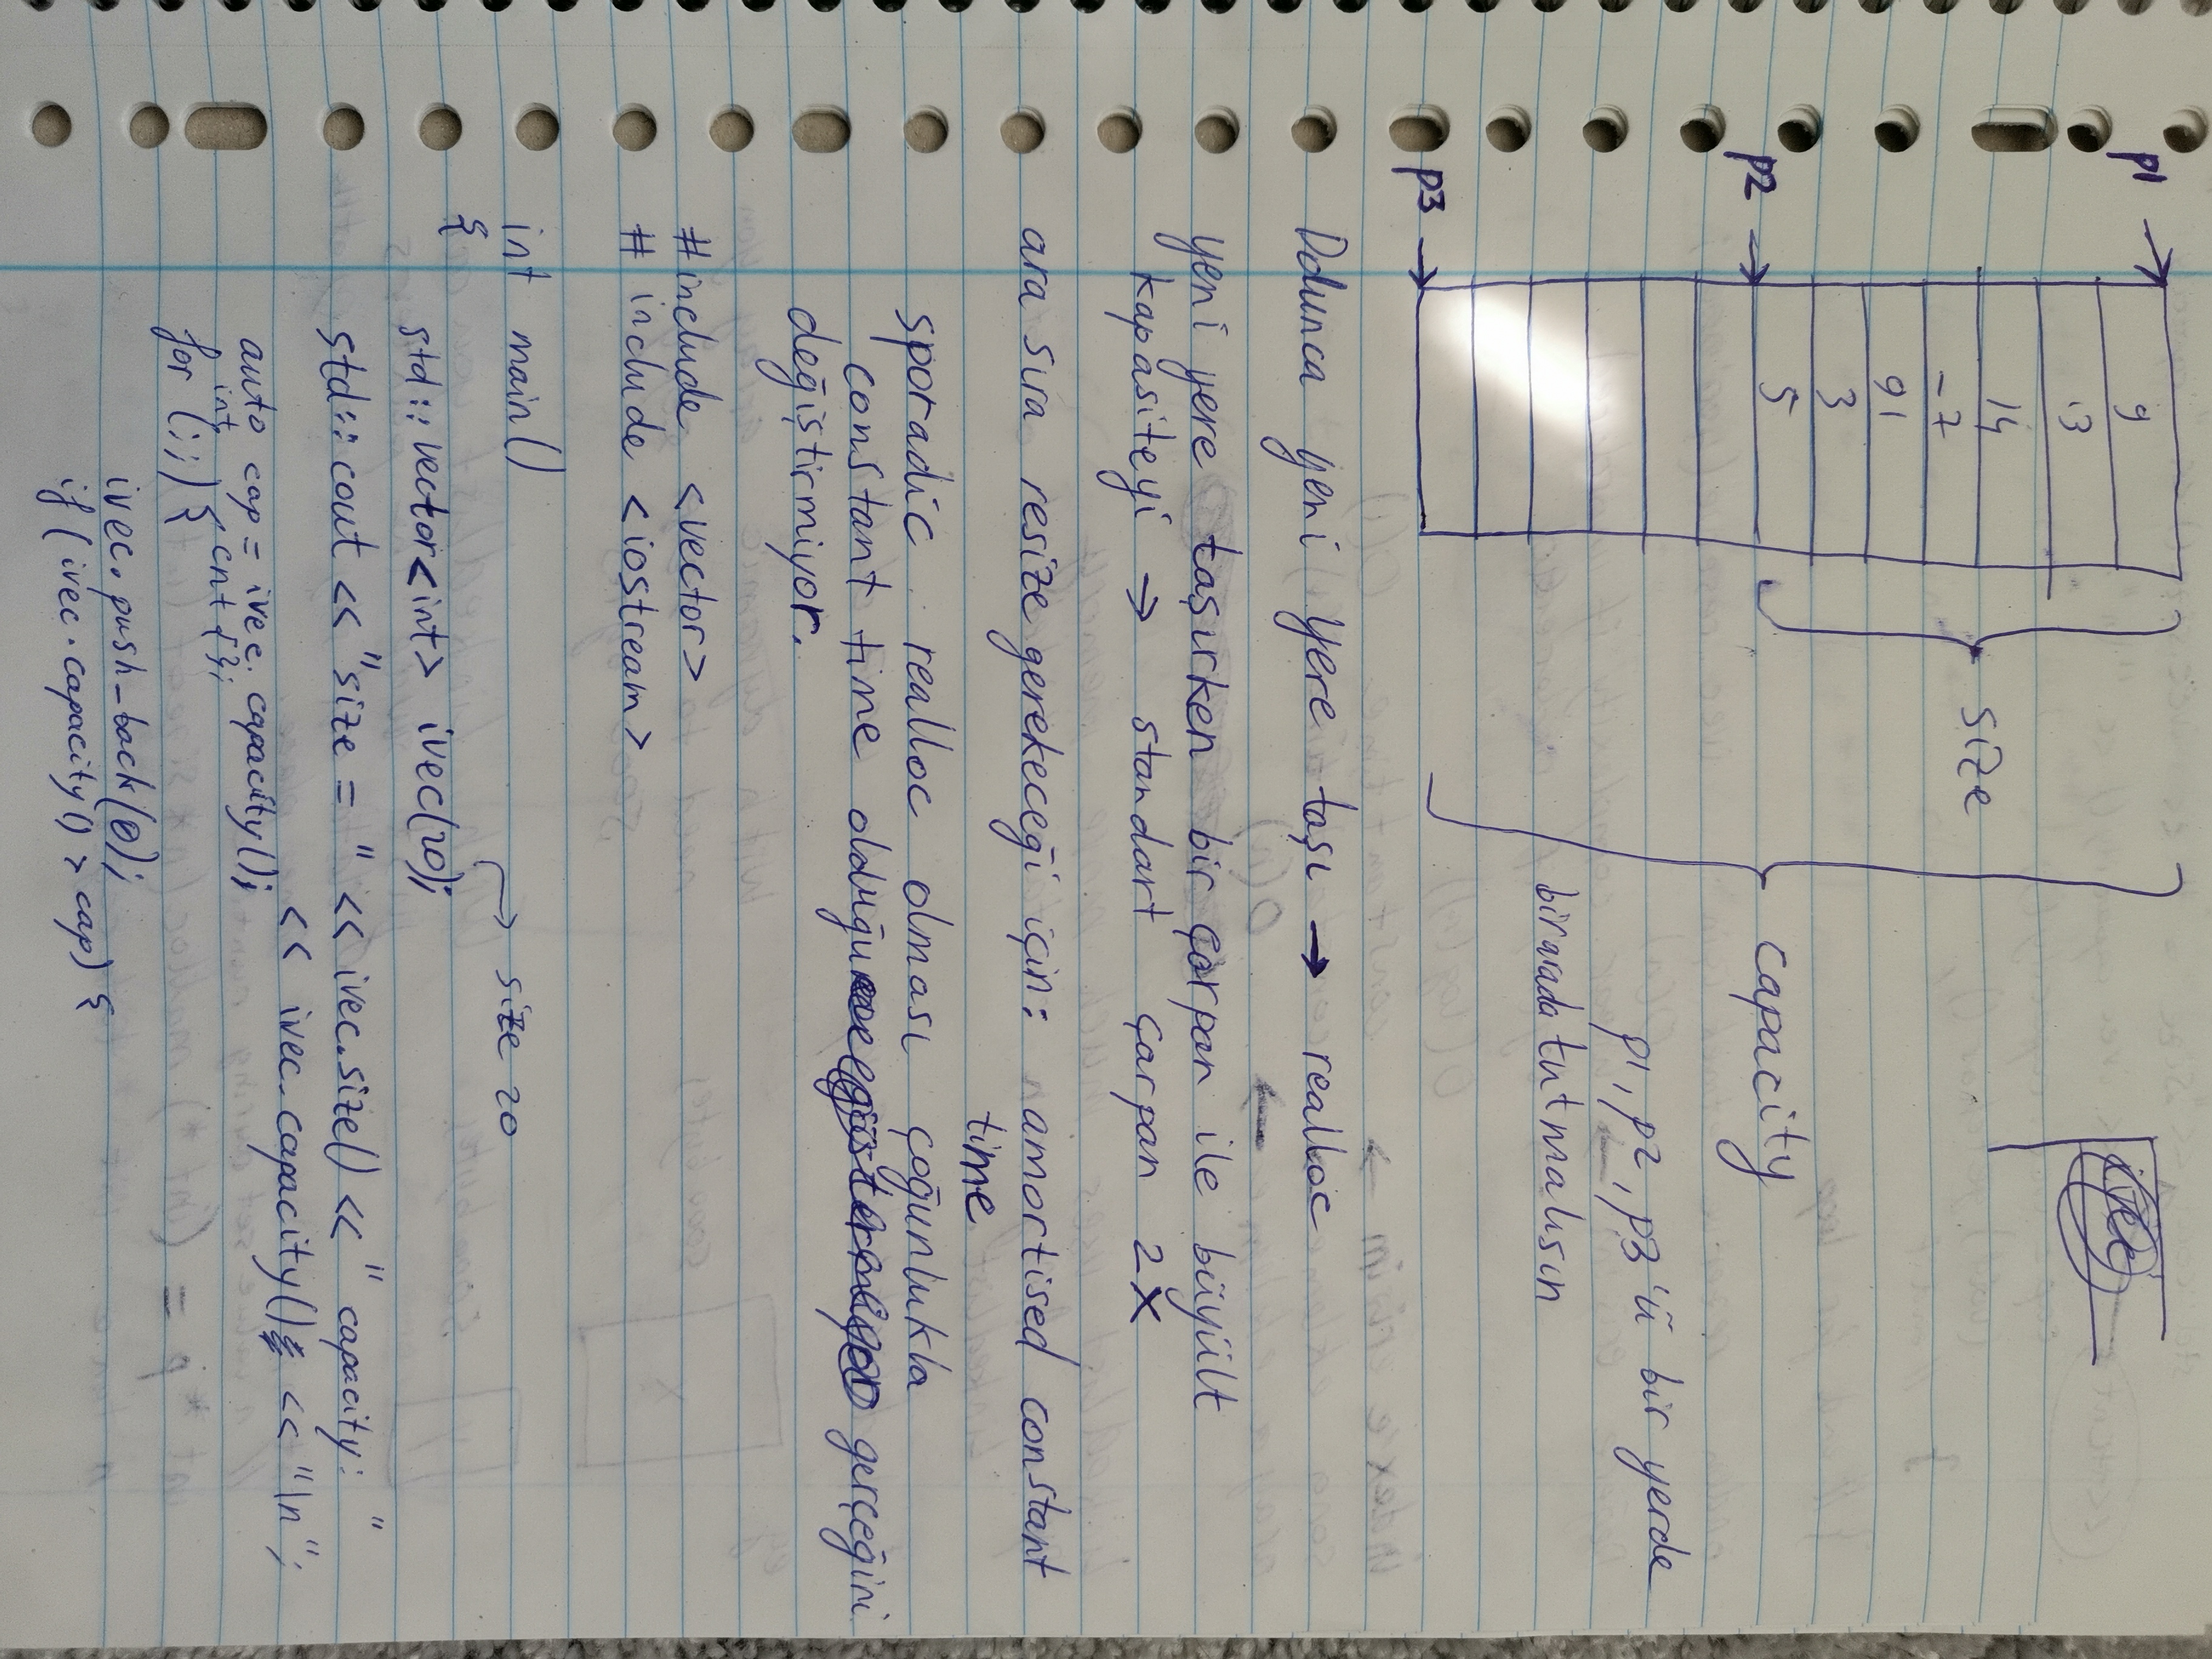 p1
9
13
14
-7
91
3
5
p2
p3
size
capacity
ivec
p1, p2, p3'ü bir yerde
birarada tutmalısın
Dolunca yeni yere taşı → realloc
yeni yere taşırken bir çarpan ile büyült
kapasiteyi → standart çarpan 2X
ara sıra resize gerekeceği için: amortised constant
time
sporadic realloc olması çoğunlukla
constant time olduğu gerçeğini
değiştirmiyor.
#include <vector>
# include <iostream>
int main()
{
→ size 20
std::vector<int> ivec(20);
std::cout << "size = " << ivec.size() << " capacity: "
<< ivec.capacity() << "\n";
auto cap = ivec.capacity();
int cnt {};
for (;;) {
ivec.push_back(0);
if (ivec.capacity() > cap) {